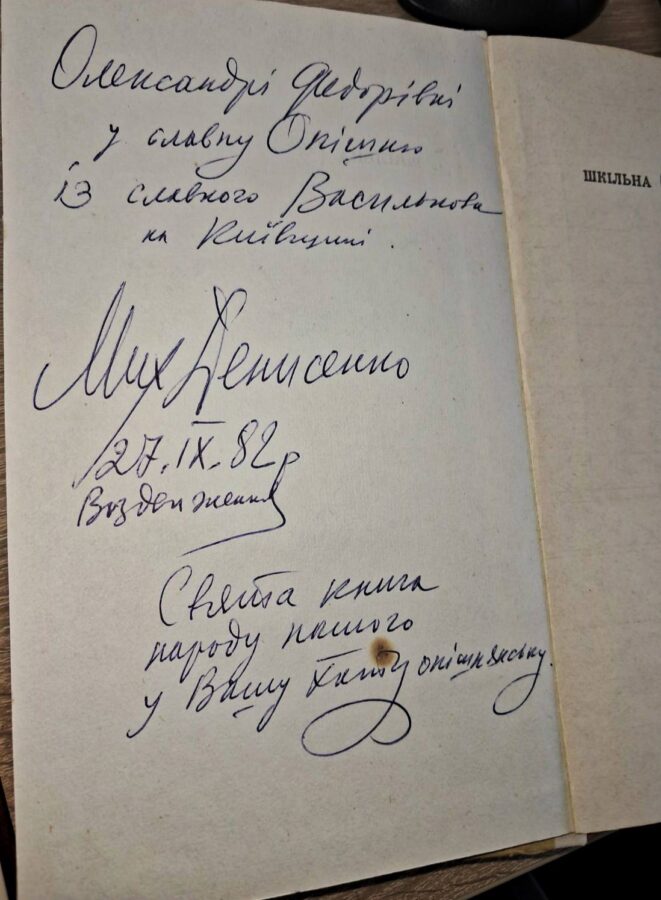 Олександрі Федорівні
у славну Опішню
із славного Василькова
на Київщині.
Мих Денисенко
27.IX.82р
Воздвиження
Свята книга
народу нашого
у Вашу хату опішнянську.
ШКІЛЬНА